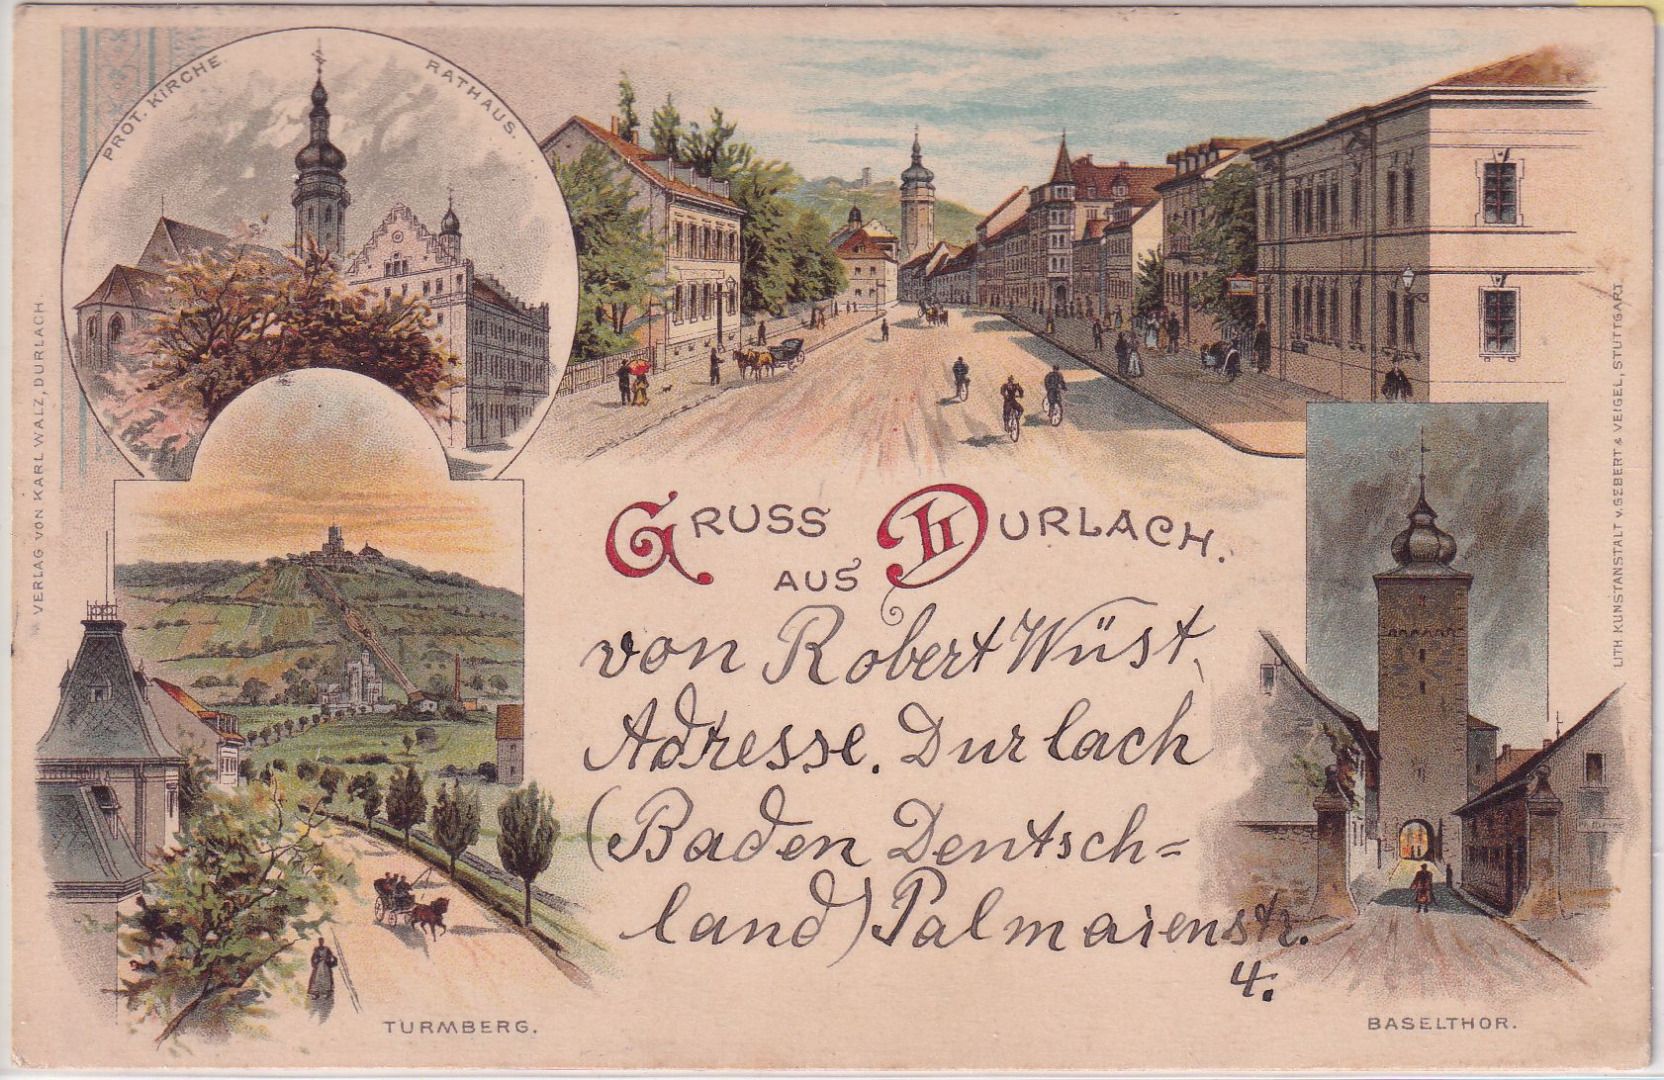 PROT. KIRCHE.
RATHAUS.
GRUSS
AUS DURLACH.
von Robert Wüst,
Adresse. Durlach
(Baden Deutsch=
land) Palmaienstr.
4.
TURMBERG.
BASELTHOR.
VERLAG VON KARL WALZ, DURLACH.
LITH KUNSTANSTALT v. GEBERT & VEIGEL, STUTTGART.